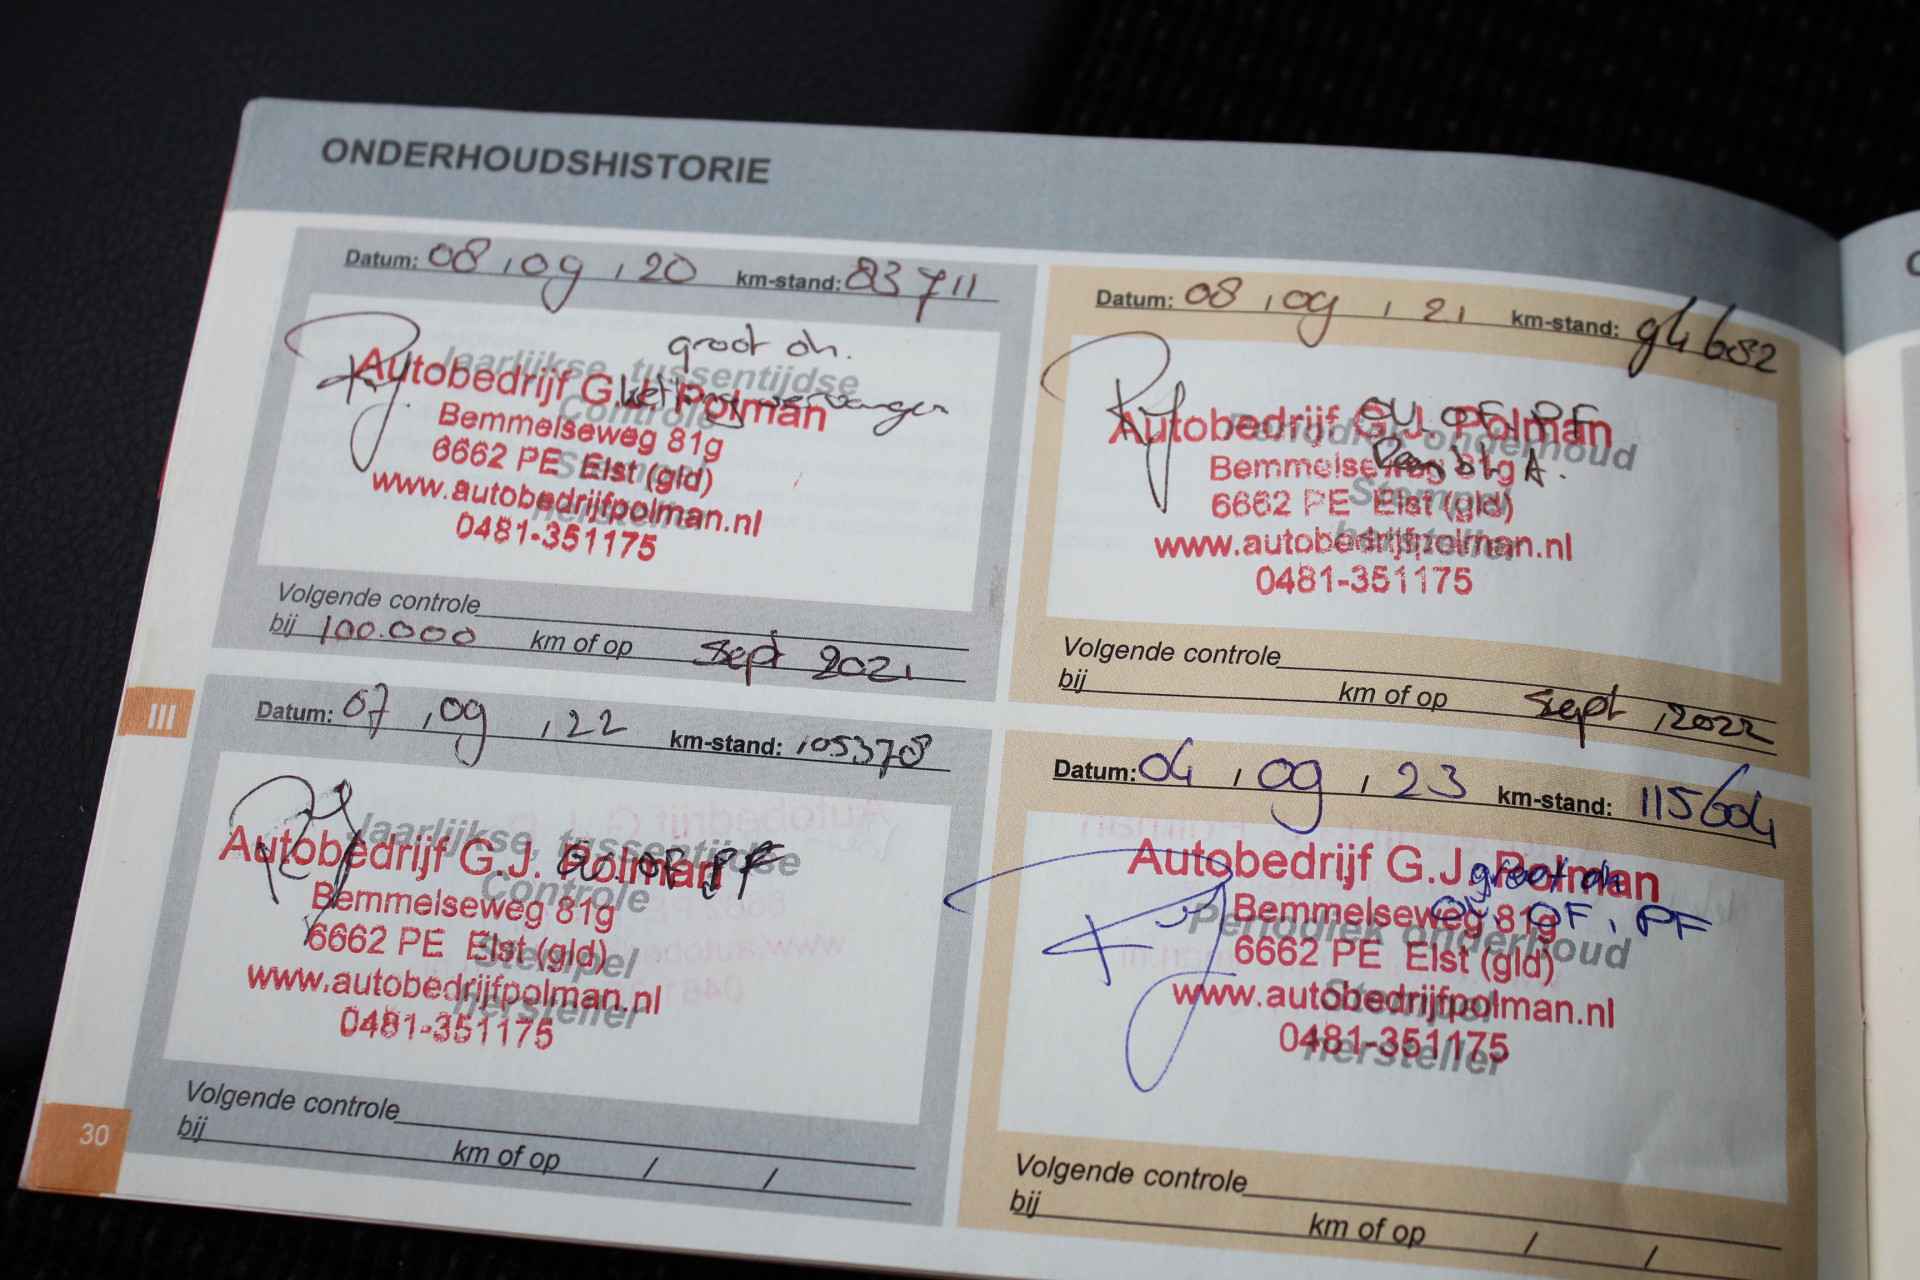 ONDERHOUDSHISTORIE
Datum: 08 , 09 , 20 km-stand: 83711
groot oh.
Jaarlijkse, tussentijdse
Controle
Stempel
hersteller
Autobedrijf G.J. Polman
ketting vervangen
Bemmelseweg 81g
6662 PE Elst (gld)
www.autobedrijfpolman.nl
0481-351175
Volgende controle
bij 100.000 km of op sept 2021
Datum: 08 , 09 , 21 km-stand: 94682
OU, OF, PF
Periodiek onderhoud
Stempel
hersteller
Autobedrijf G.J. Polman
Bemmelseweg 81g
6662 PE Elst (gld)
www.autobedrijfpolman.nl
0481-351175
Volgende controle
bij km of op sept , 2022
III
Datum: 07 , 09 , 22 km-stand: 105378
Jaarlijkse, tussentijdse
Controle
Stempel
hersteller
Autobedrijf G.J. Polman
OU. OF, PF
Bemmelseweg 81g
6662 PE Elst (gld)
www.autobedrijfpolman.nl
0481-351175
Volgende controle
bij km of op / /
Datum: 04 , 09 , 23 km-stand: 115604
Autobedrijf G.J. Polman
groot oh
OU, OF, PF
Periodiek onderhoud
Stempel
hersteller
Bemmelseweg 81g
6662 PE Elst (gld)
www.autobedrijfpolman.nl
0481-351175
Volgende controle
bij km of op / /
30